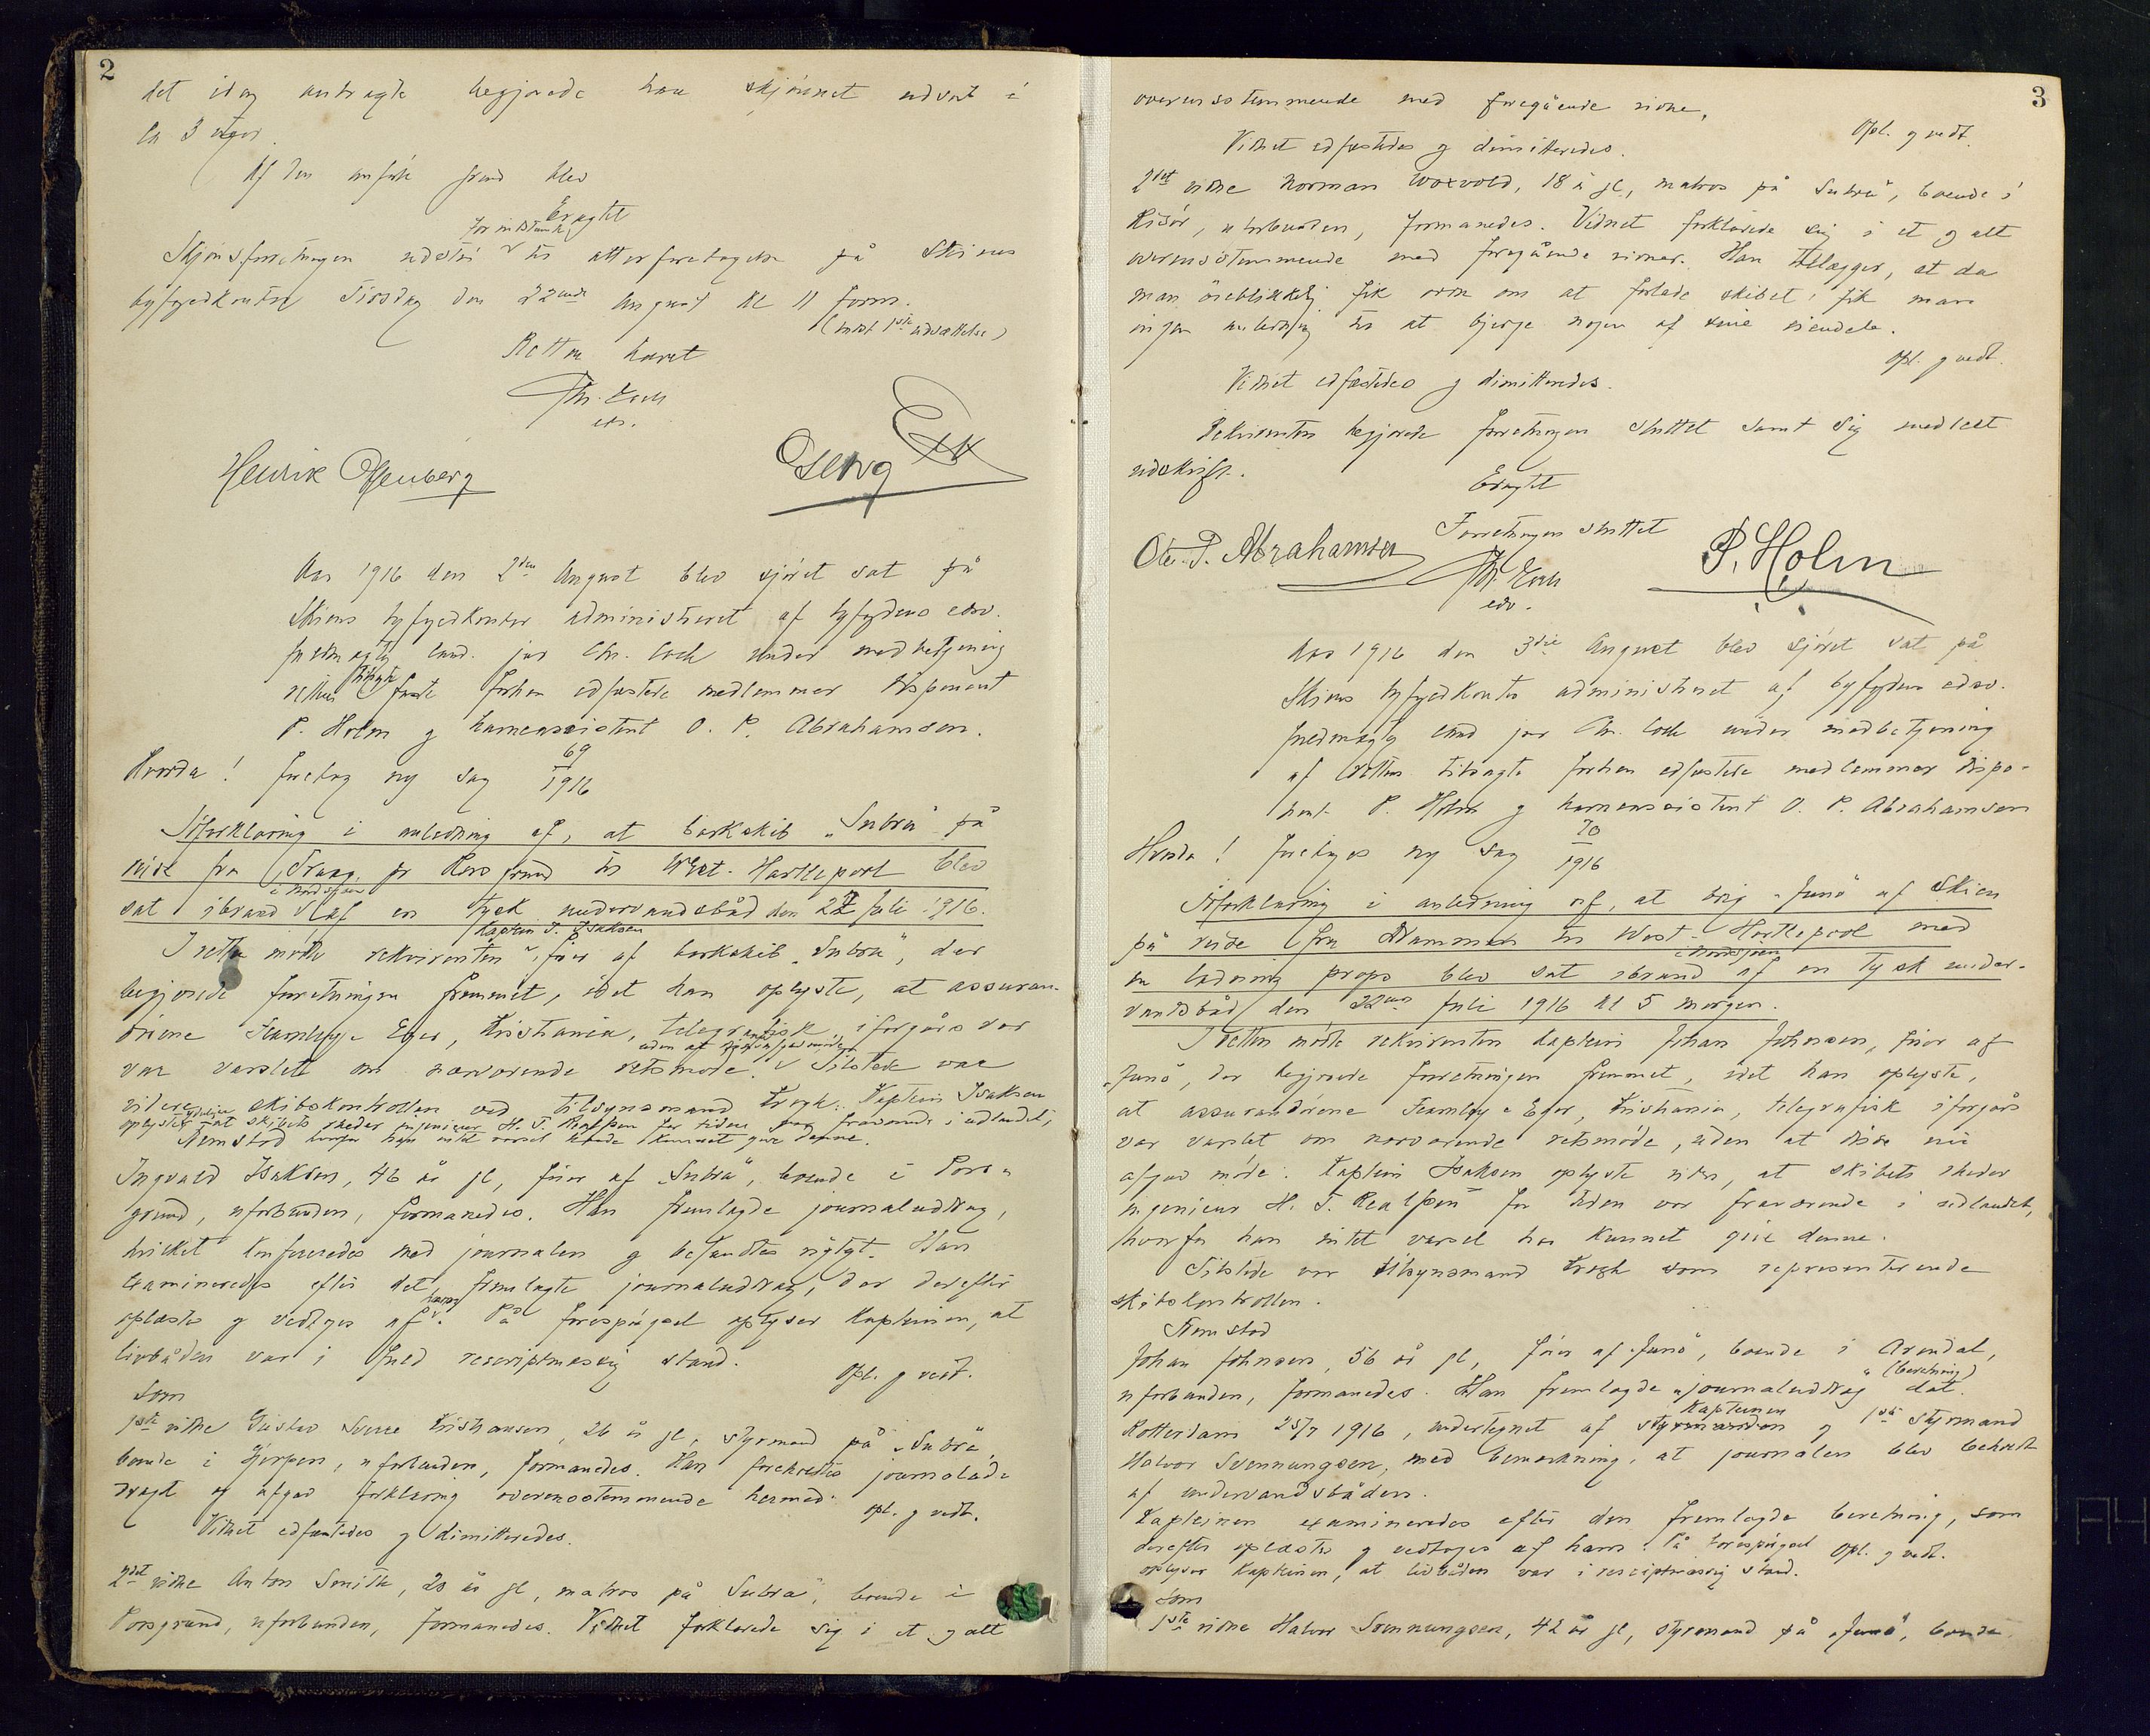 2
det idag antragte begjærede have skjønnet udsat i
ca 3 uger.
Af den anførte grund blev
Eragtet
Skjønsforretningen udstår for intetsteds til atterforetagelse på Skiens
byfogedkontor Tirsdag den 22nde August kl 11 form.
(intet 1ste udsættelse)
Retten hævet
Chr. Cock
edv.
Henrik Offenberg
Georg Eek
Aar 1916 den 2den August blev sjøret sat på
Skiens byfogedkontor administreret af byfogdens edsv.
fuldmægtig cand. jur Chr. Cock under medbetjening
rettens tilsagte faste forhen edfæstede medlemmer disponent
P. Holm og havneassistent O. P. Abrahamsen.
Hvorda! foretog ny sag 69/1916
Søforklaring i anledning af, at barkskib "Subra" på
reise fra Kragerø pr Porsgrund til West-Hartlepool blev
sat i brand i Nordsjøen af en tysk undervandsbåd den 22 Juli 1916.
I retten mødte rekvirenten Kaptein I. Isaksen, fører af barkskib "Subra", der
begjærede forretningen fremmet, idet han oplyste, at assuran-
dørerne Fearnley & Eger, Kristiania, telegrafisk iforgårs var
var varslet om nærværende retsmøde, uden at nogen fremmødte. Tilstede var
videre skibskontrollen ved tilsynsmand Krogh. Kaptein Isaksen
oplyste, at skibets reder ingeniør H. T. Realfsen for tiden var fraværende i udlandet,
hvorfor han intet varsel havde kunnet give denne.
Fremstod
Ingvald Isaksen, 46 år gl, fører af "Subra", boende i Pors-
grund, uforbunden, formanedes. Han fremlagde journaludtrag,
hvilket konfereredes med journalen og befandtes rigtigt. Han
examineredes efter det fremlagte journaludtrag, der derefter
oplæstes og vedtoges af ham. På forespørgsel oplyser kapteinen, at
livbåden var i fuld reseriptmæssig stand.
Opl. og vedt.
Som
1ste vidne Gustav Sverre Kristiansen, 26 år gl, styrmand på "Subra",
boende i Gjerpen, uforbunden, formanedes. Han foreholdtes journalud-
draget og afgav forklaring overensstemmende hermed.
opl. og vedt.
Vidnet edfæstedes og dimitteredes.
2det vidne Anton Smith, 20 år gl, matros på "Subra", boende i
Porsgrund, uforbunden, formanedes. Vidnet forklarede sig i et og alt
3
overensstemmende med foregående vidne.
Opl. og vedt.
Vidnet edfæstedes og dimitteredes.
2det vidne Norman Woxvold, 18 år gl, matros på "Subra", boende i
Risør, uforbunden, formanedes. Vidnet forklarede sig i et og alt
overensstemmende med foregående vidner. Han tillægger, at da
man øieblikkelig fik ordre om at forlade skibet, fik man
ingen anledning til at bjerge nogen af sine eiendele.
Opl. og vedt.
Vidnet edfæstedes og dimitteredes.
Rekvirenten begjærede forretningen sluttet samt sig meddelt
udskrift.
Eragtet
Forretningen sluttet
Ole. P. Abrahamsen
Chr. Cock
edv.
P. Holm
Aar 1916 den 3die August blev sjøret sat på
Skiens byfogedkontor administreret af byfogdens edsv.
fuldmægtig cand jur Chr. Cock under medbetjening
af rettens tilsagte forhen edfæstede medlemmer dispo-
nent P. Holm og havneassistent O. P. Abrahamsen
Hvorda! foretoges ny sag 70/1916
Søforklaring i anledning af, at brig "Juno" af Skien
på reise fra Drammen til West-Hartlepool med
en ladning props blev sat i brand i Nordsjøen af en tysk under-
vandsbåd den 22den Juli 1916 kl 5 morgen.
I retten mødte rekvirenten kaptein Johan Johnsen, fører af
"Juno", der begjærede forretningen fremmet, idet han oplyste,
at assurandørerne Fearnley & Eger, Kristiania, telegrafisk iforgårs
var varslet om nærværende retsmøde, uden at disse nu
afgav møde. Kaptein Isaksen oplyste videre, at skibets reder
ingeniør H. T. Realfsen for tiden var fraværende i udlandet,
hvorfor han intet varsel har kunnet give denne.
Tilstede var tilsynsmand Krogh som repræsenterende
skibskontrollen.
Fremstod
Johan Johnsen, 56 år gl, fører af "Juno", boende i Arendal,
uforbunden, formanedes. Han fremlagde "journaludtrag" (beretning) dat.
Rotterdam 25/7 1916, undertegnet af styrmanden kapteinen og 1ste styrmand
Halvor Svennungsen, med bemærkning, at journalen blev beholdt
af undervandsbåden.
Kapteinen examineredes efter den fremlagde beretning, som
derefter oplæstes og vedtoges af ham. På forespørgsel
Opl. og vedt.
oplyser kapteinen, at livbåden var i resciptmæssig stand.
Som
1ste vidne Halvor Svennungsen, 42 år gl, styrmand på "Juno", boende